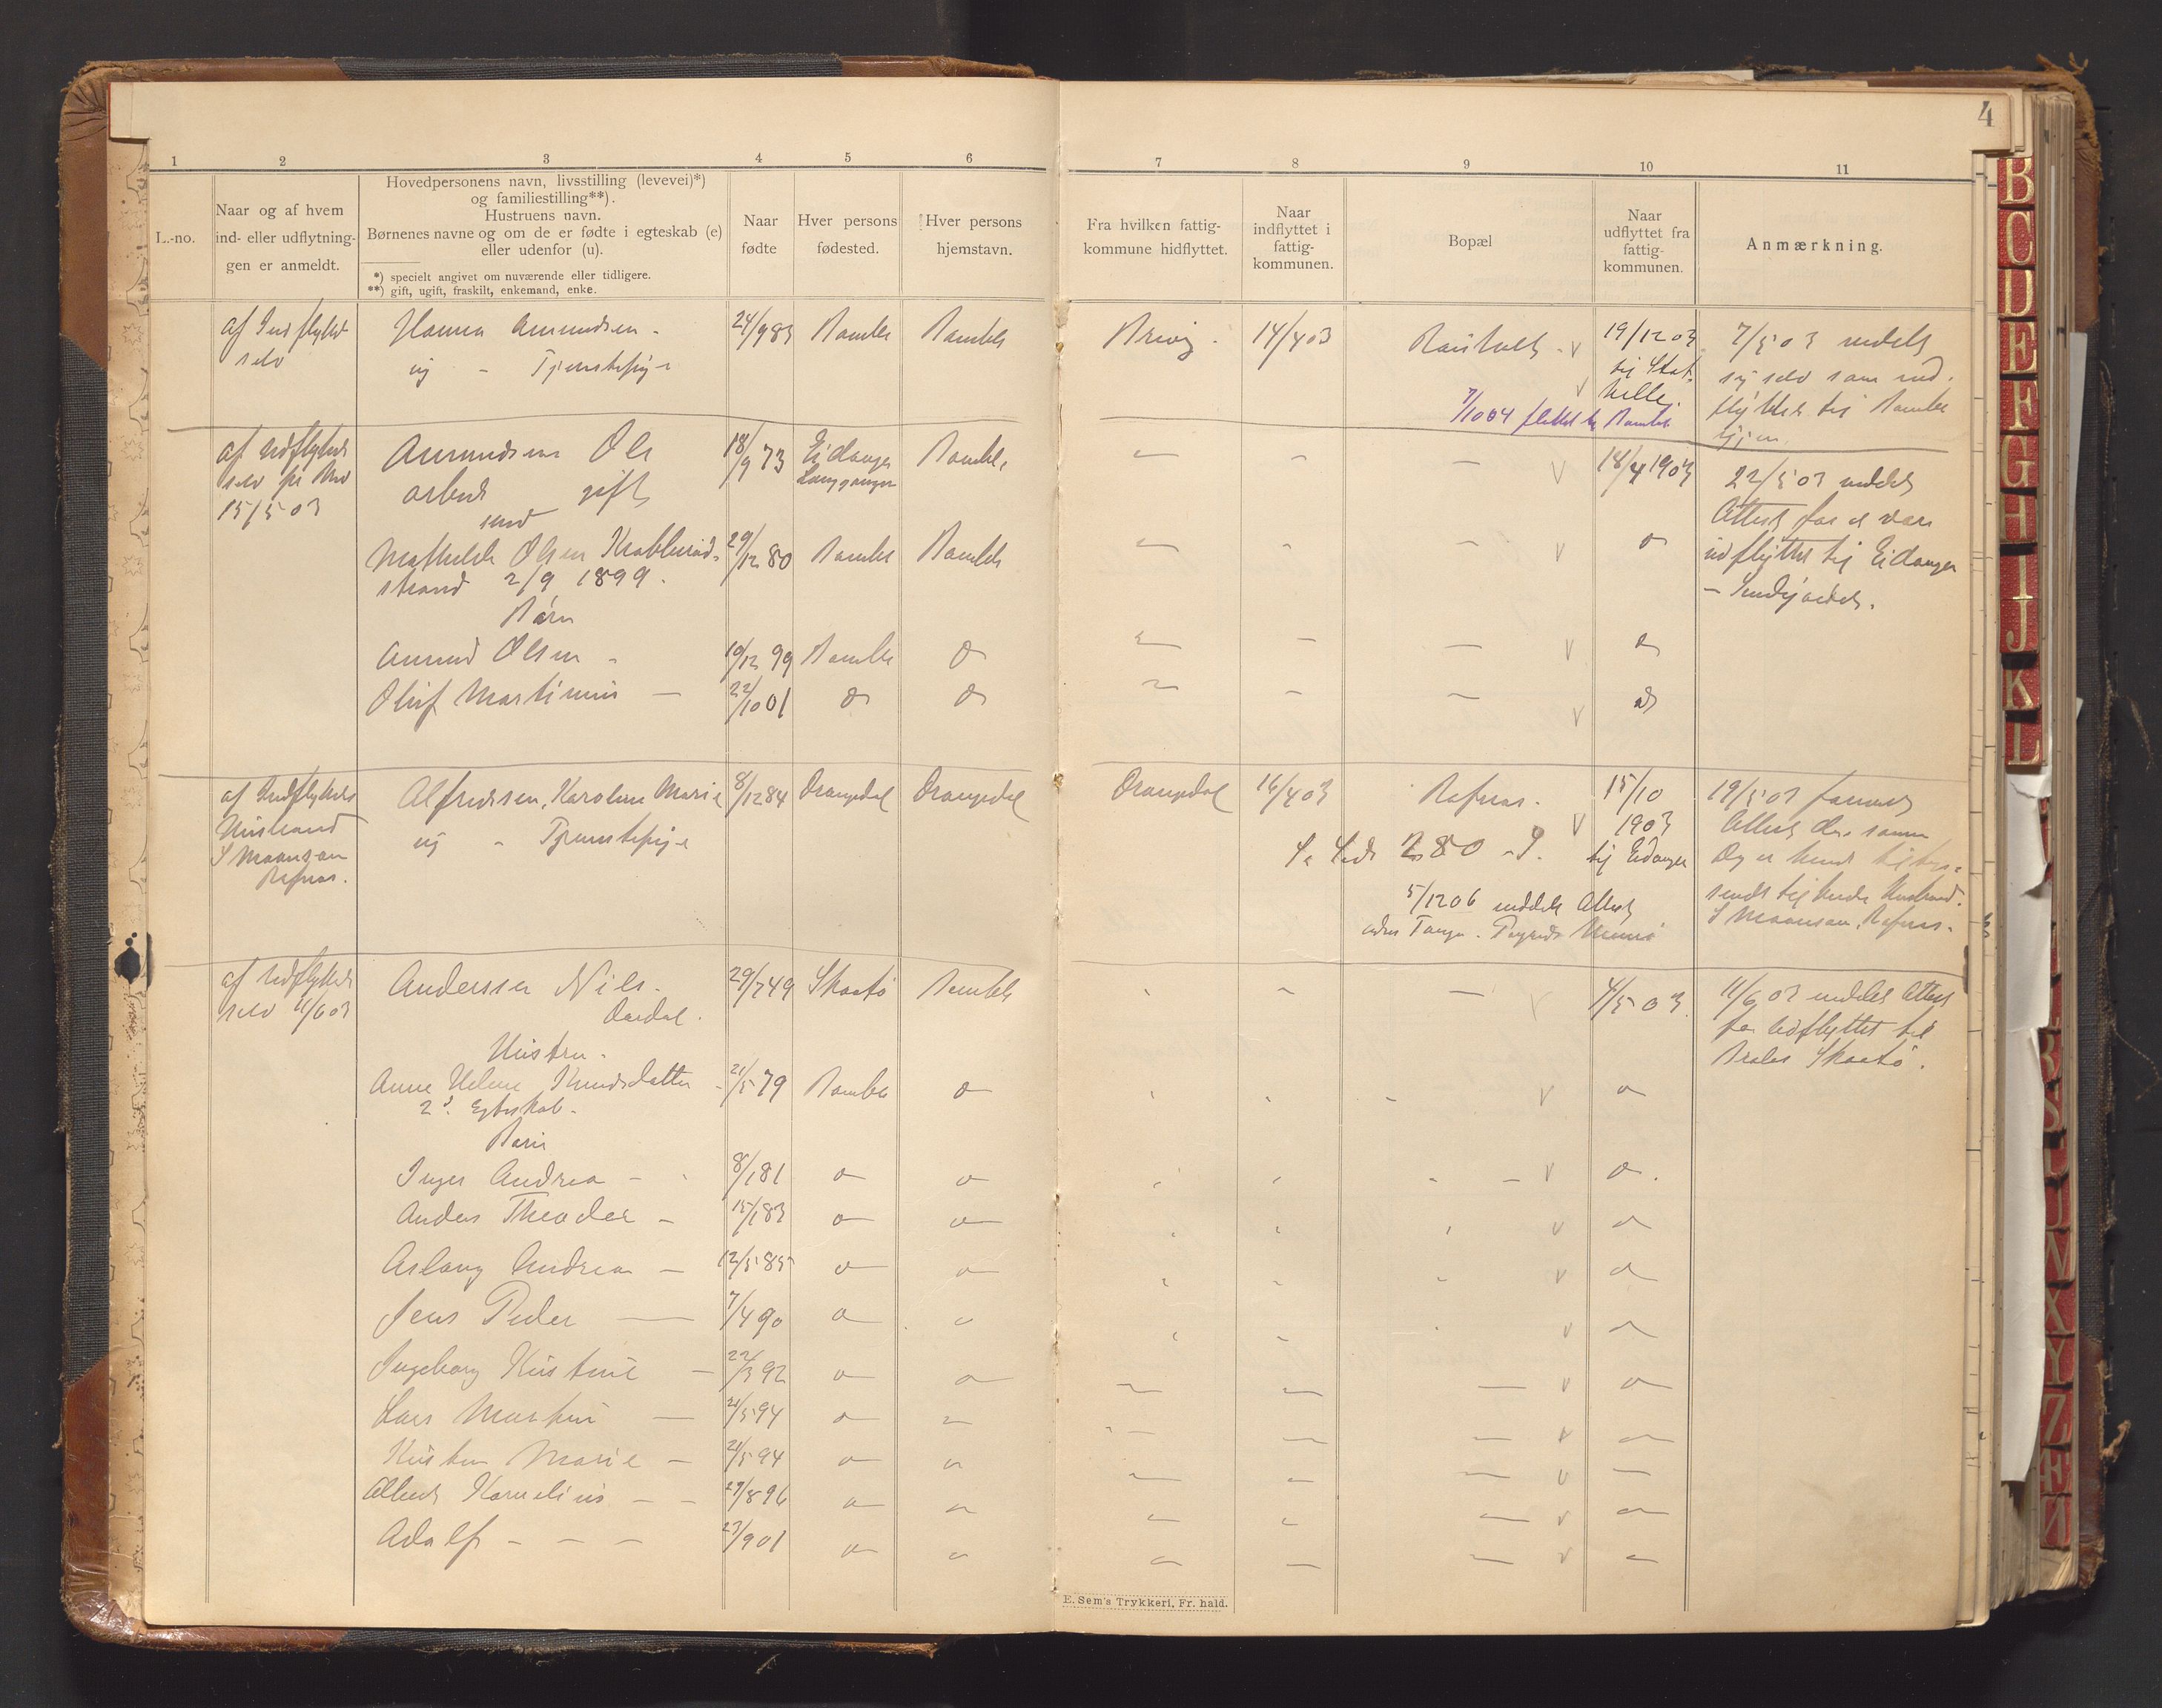 4
1 2 3 4 5 6 7 8 9 10 11
L.-no.
Naar og af hvem
ind- eller udflytnin-
gen er anmeldt.
Hovedpersonens navn, livsstilling (levevei)*)
og familiestilling**).
Hustruens navn.
Børnenes navne og om de er fødte i egteskab (e)
eller udenfor (u).
*) specielt angivet om nuværende eller tidligere.
**) gift, ugift, fraskilt, enkemand, enke.
Naar
fødte
Hver persons
fødested.
Hver persons
hjemstavn.
Fra hvilken fattig-
kommune hidflyttet.
Naar
indflyttet i
fattig-
kommunen.
Bopæl
Naar
udflyttet fra
fattig-
kommunen.
Anmærkning.
af Indflyttede
selv
Hanna Amundsen -
ug - Tjenstepige
24/9 83 Bamble Bamble
Brevig - 14/4 03
19/12 03
til Stat-
helle.
7/10 04 flyttet til Bamble
7/5 03 meldt
sig selv som ind-
flyttet til Bamble
igjen
af Udflyttede
selv pr
15/5 03
Amundsen Ole
arbeid gift
med
18/9 73 Eidanger
Langangen
Bamble
18/4 1903
22/5 03 meddelt
Attest for at være
udflyttet til Eidanger
Mathilde Olsen Krabberød-
strand 2/9 1899.
29/12 80 Bamble Bamble
Børn
Amund Olsen - 19/12 99 Bamble do
Oluf Martinius - 22/10 01 do do
af Indflyttedes
Husbond
S Moansan
Rafnæs.
Alfredsen, Karoline Marie
ug - Tjenstepige
8/12 84 Drangedal Drangedal
Drangedal 16/4 03 Rafnæs.
15/10
1903
til Eidanger
Se Side 280 - S.
5/12 06 meddelt Attest
19/5 03
Attest
Og er hende tilba-
sendt til hendes Husbond.
S Moansan, Rafnæs.
af Udflyttede
selv 11/6 03
Andersen Nils -
29/7 49 Skaatø Bamble
4/5 03
11/6 03 meddelt Attest
for Udflyttet til
Skaatø.
Hustru -
Anne Helene Knudsdatter - 21/5 79 Bamble do
2d Egteskab -
Børn
Inger Andrea - 8/1 81 do do
Anders Theodor - 15/1 83 do do
Aslaug Andrea - 12/5 85 do do
Jens Peder - 7/4 90 do do
Ingeborg Kristine - 22/3 92 do do
Lars Martin - 21/5 94 do do
Kirsten Marie - 21/5 94 do do
Albert Kornelius - 29/8 96 do do
Adolf - - - 23/9 01 do do
E. Sem's Trykkeri, Fr. hald.
B
C
D
E
F
G
H
I
J
K
L